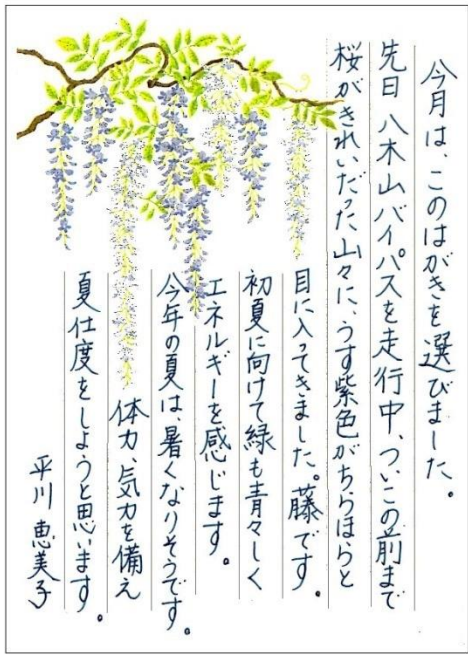 今月は、このはがきを選びました。
先日 八木山バイパスを走行中、ついこの前まで
桜がきれいだった山々に、うす紫色がちらほらと
目に入ってきました。藤です。
初夏に向けて緑も青々しく
エネルギーを感じます。
今年の夏は、暑くなりそうです。
体力、気力を備え
夏仕度をしようと思います。
平川 恵美子